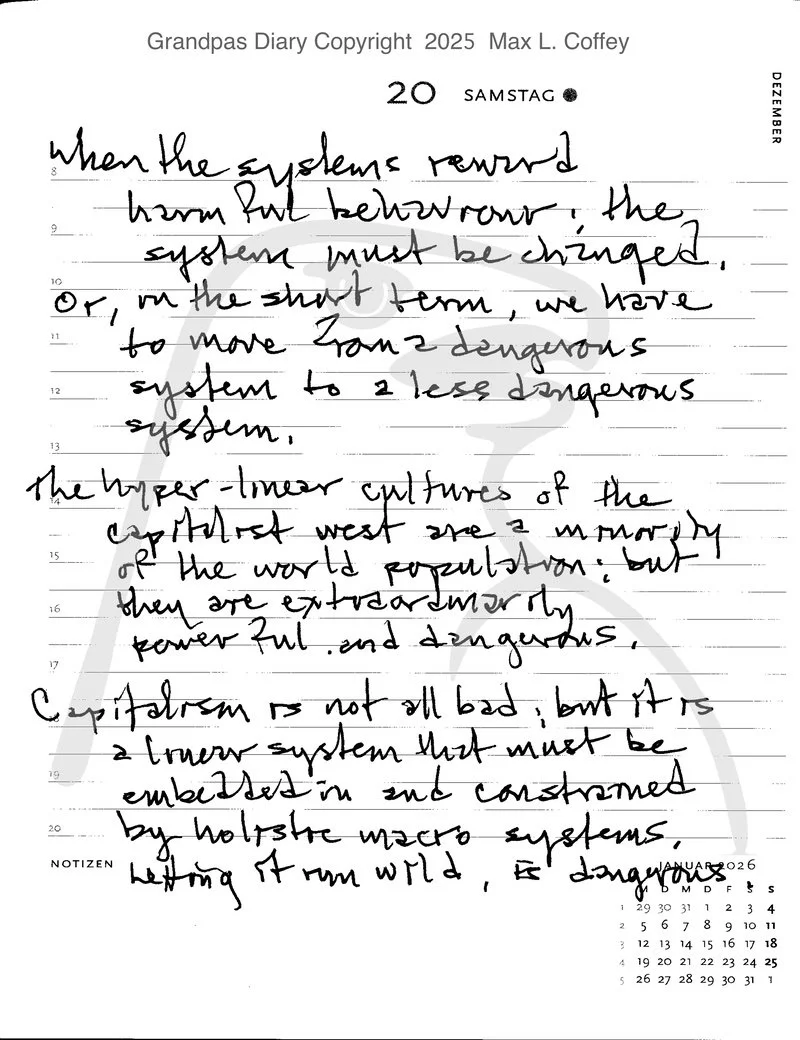 Grandpas Diary Copyright 2025 Max L. Coffey
20 SAMSTAG
DEZEMBER
When the systems reward
8
harmful behaviour, the
9
system must be changed.
10
Or, in the short term, we have
11
to move from a dangerous
12
system to a less dangerous
system.
13
The hyper-linear cultures of the
14
capitalist west are a minority
15
of the world population; but
they are extraordinarily
16
powerful and dangerous.
17
Capitalism is not all bad; but it is
a linear system that must be
19
embedded in and constrained
20
by holistic macro systems.
NOTIZEN
Letting it run wild, is dangerous
JANUAR 2026
M D M D F S S
1 29 30 31 1 2 3 4
2 5 6 7 8 9 10 11
3 12 13 14 15 16 17 18
4 19 20 21 22 23 24 25
5 26 27 28 29 30 31 1